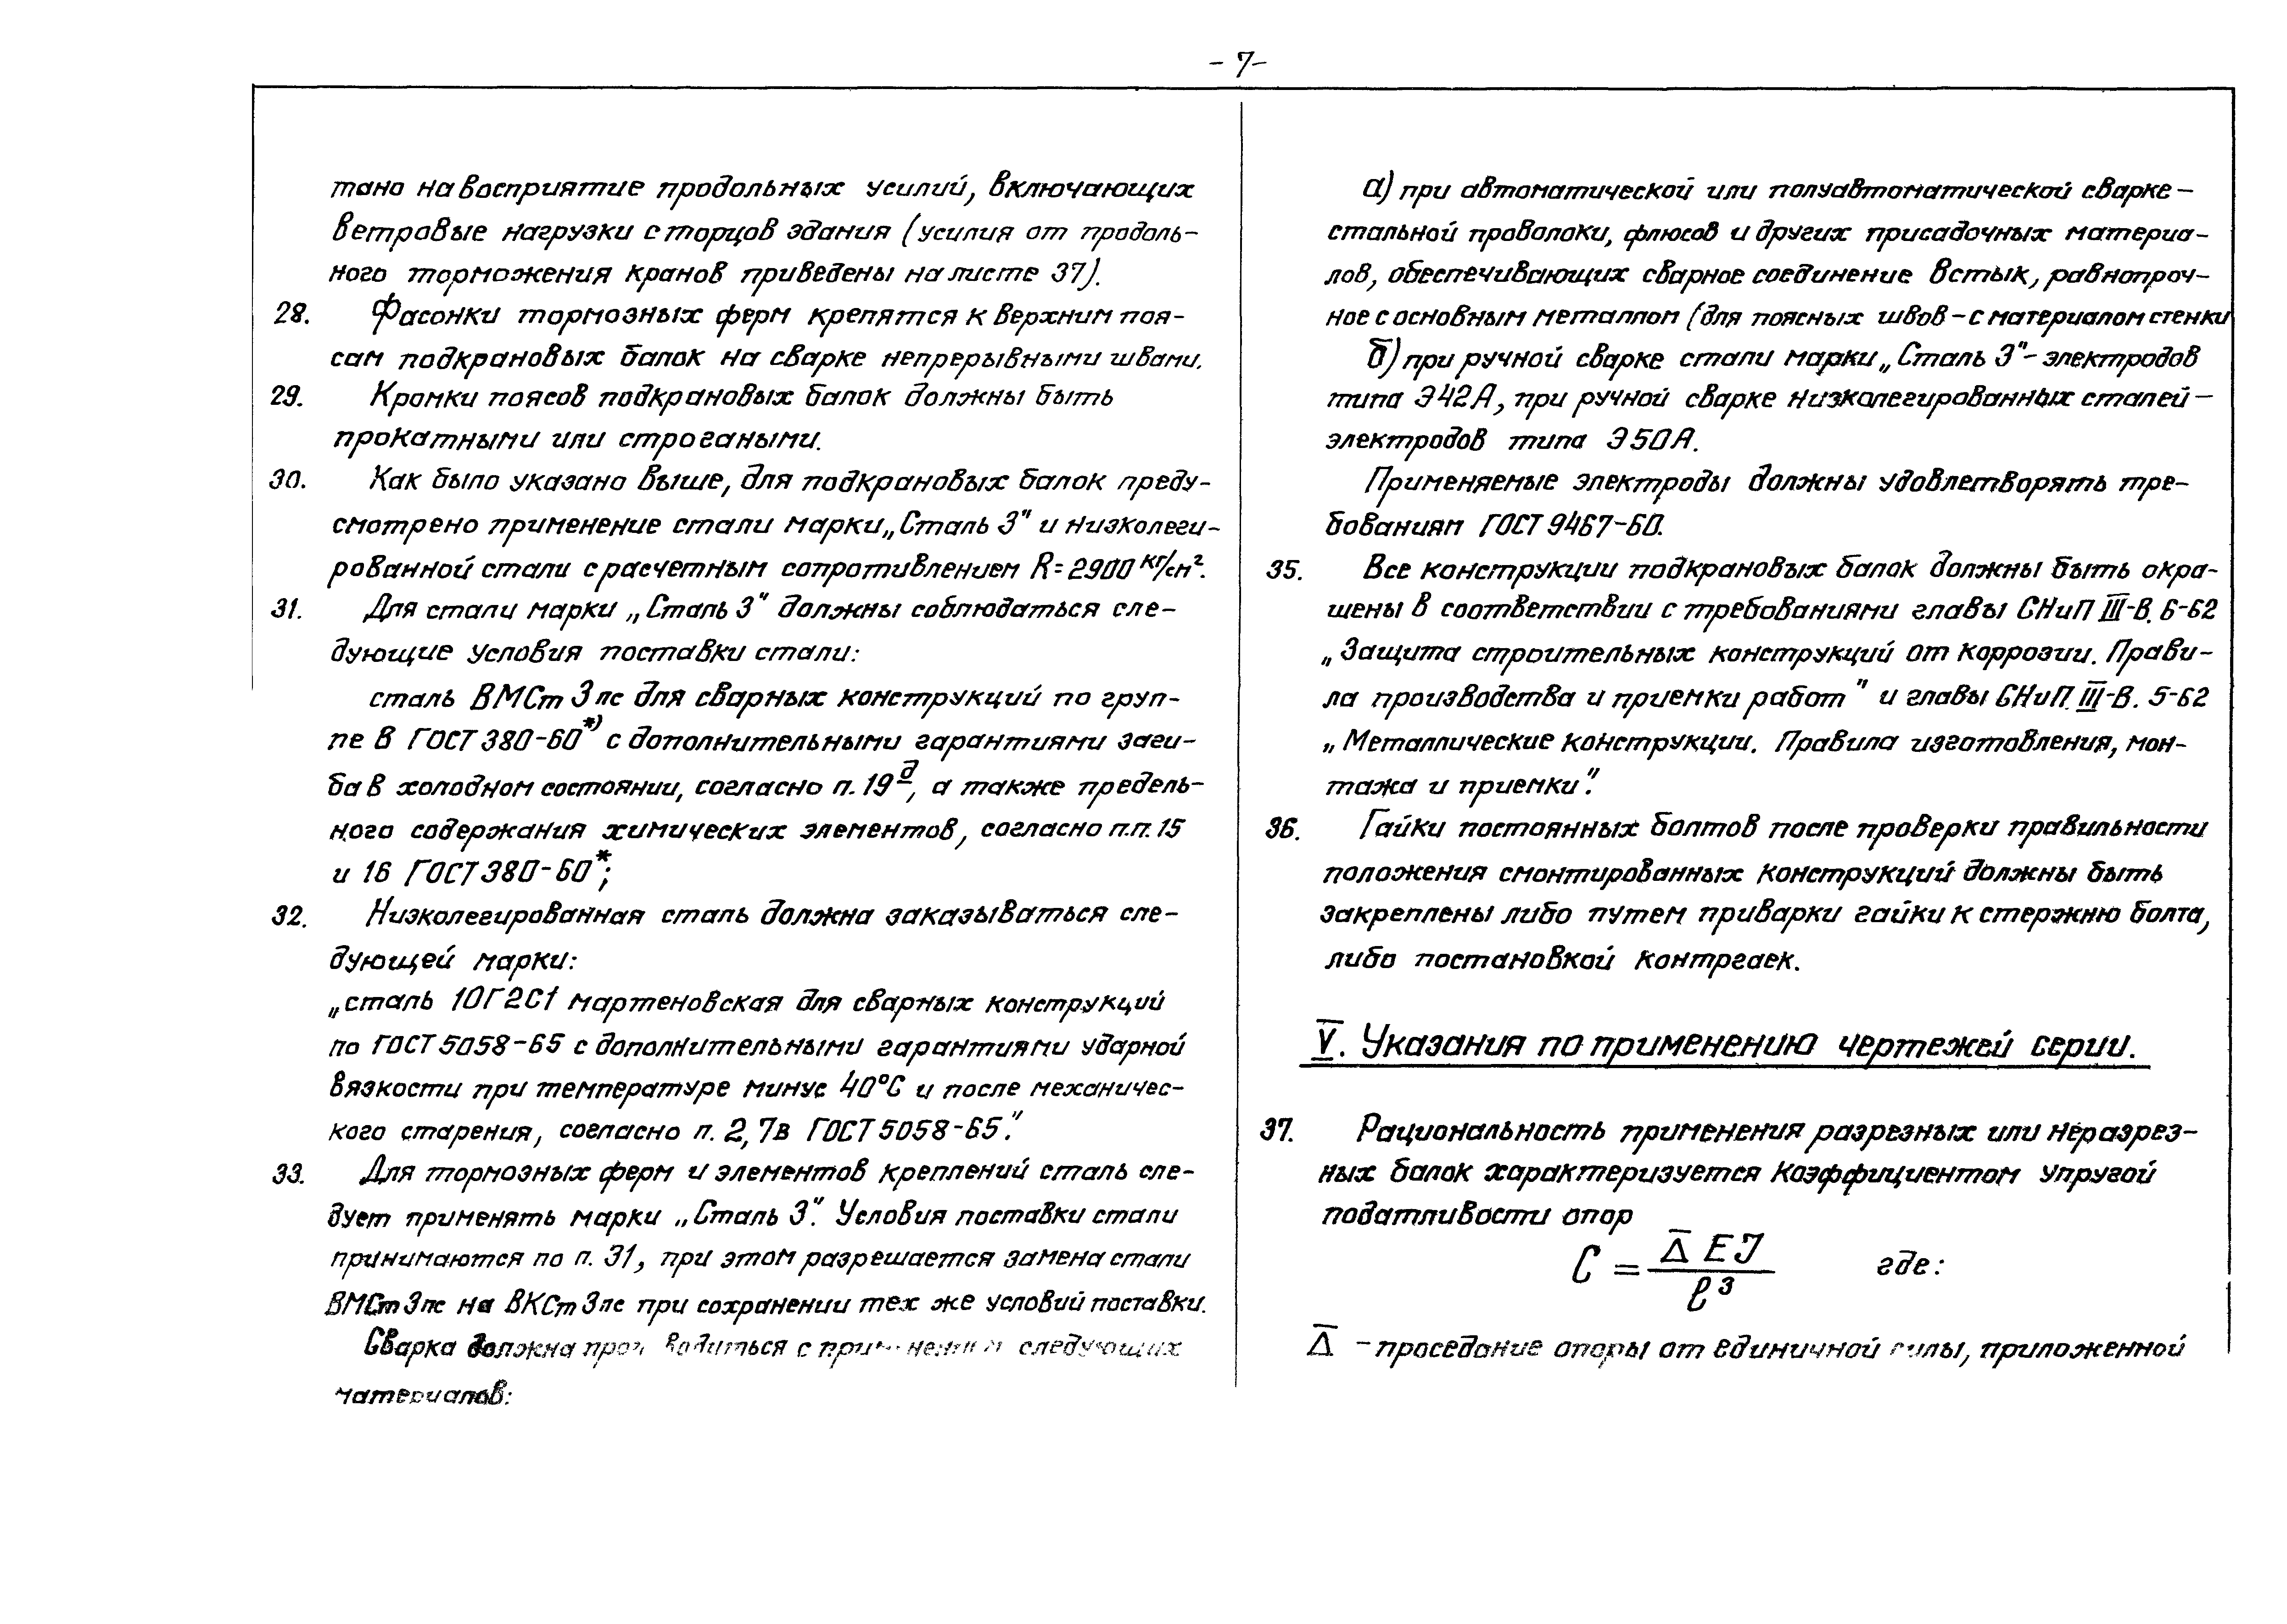 - 7-
тано на восприятие продольных усилий, включающих
ветровые нагрузки с торцов здания (усилия от продоль-
ного торможения кранов приведены на листе 37).
28. Фасонки тормозных ферм крепятся к верхним поя-
сам подкрановых балок на сварке непрерывными швами.
29. Кромки поясов подкрановых балок должны быть
прокатными или строгаными.
30. Как было указано выше, для подкрановых балок преду-
смотрено применение стали марки „Сталь 3" и низколеги-
рованной стали с расчетным сопротивлением R=2900 кг/см².
31. Для стали марки „Сталь 3" должны соблюдаться сле-
дующие условия поставки стали:
сталь ВМСт 3пс для сварных конструкций по груп-
пе В ГОСТ 380-60*) с дополнительными гарантиями заги-
ба в холодном состоянии, согласно п. 19д, а также предель-
ного содержания химических элементов, согласно п.п. 15
и 16 ГОСТ 380-60*;
32. Низколегированная сталь должна заказываться сле-
дующей марки:
„сталь 10Г2С1 мартеновская для сварных конструкций
по ГОСТ 5058-65 с дополнительными гарантиями ударной
вязкости при температуре минус 40°С и после механичес-
кого старения, согласно п. 2,7в ГОСТ 5058-65."
33. Для тормозных ферм и элементов креплений сталь сле-
дует применять марки „Сталь 3". Условия поставки стали
принимаются по п. 31, при этом разрешается замена стали
ВМСт 3пс на ВКСт 3пс при сохранении тех же условий поставки.
Сварка должна производиться с применением следующих
материалов:
а) при автоматической или полуавтоматической сварке -
стальной проволоки, флюсов и других присадочных материа-
лов, обеспечивающих сварное соединение встык, равнопроч-
ное с основным металлом (для поясных швов - с материалом стенки
б) при ручной сварке стали марки „Сталь 3" - электродов
типа Э42А, при ручной сварке низколегированных сталей -
электродов типа Э50А.
Применяемые электроды должны удовлетворять тре-
бованиям ГОСТ 9467-60.
35. Все конструкции подкрановых балок должны быть окра-
шены в соответствии с требованиями главы СНиП III-В. 6-62
„Защита строительных конструкций от коррозии. Прави-
ла производства и приемки работ" и главы СНиП III-В. 5-62
„Металлические конструкции. Правила изготовления, мон-
тажа и приемки".
36. Гайки постоянных болтов после проверки правильности
положения смонтированных конструкций должны быть
закреплены либо путем приварки гайки к стержню болта,
либо постановкой контргаек.
V. Указания по применению чертежей серии.
37. Рациональность применения разрезных или неразрез-
ных балок характеризуется коэффициентом упругой
податливости опор
C = Δ̅ EJ / ℓ³ где:
Δ̅ - проседание опоры от единичной силы, приложенной